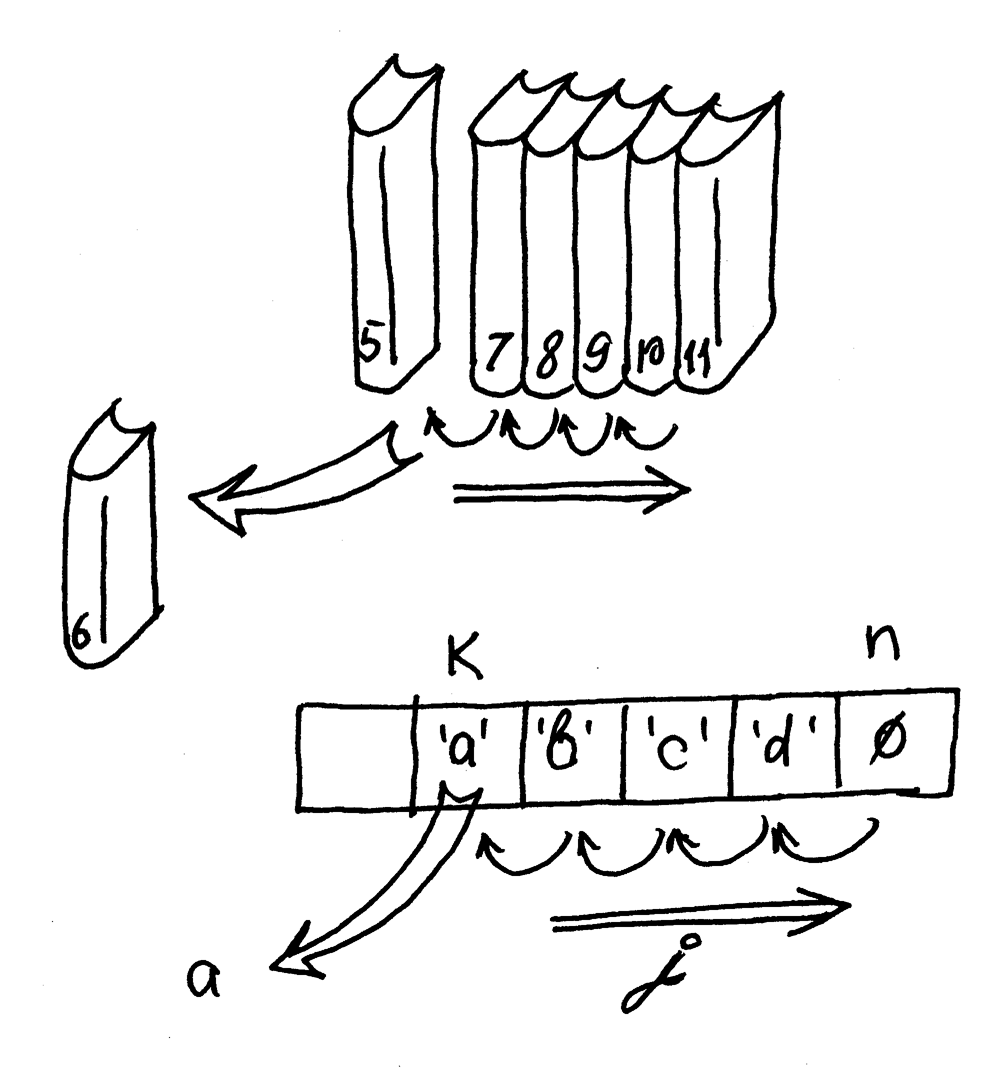 5 7 8 9 10 11
6
K n
'a' 'b' 'c' 'd' ø
j
a